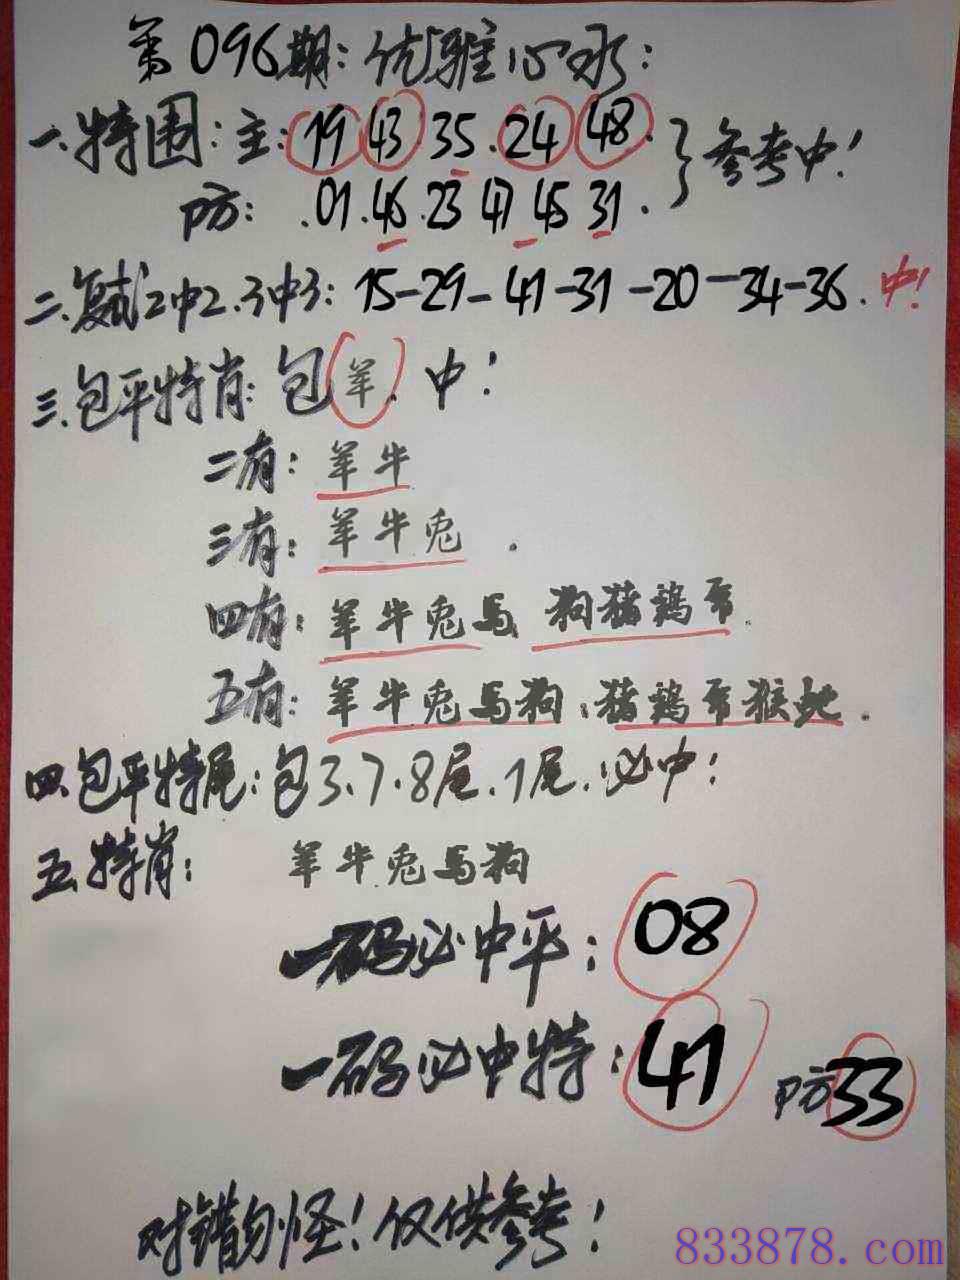 第096期:优雅心水:
一.特围:主:19 43 35.24 48.
防:.01.46.23 47 45 31.
参考中!
二.复试2中2.3中3:15-29-41-31-20-34-36.中!
三.包平特肖:包羊.中!
二有:羊牛
三有:羊牛兔.
四有:羊牛兔马 狗猪鸡
五有:羊牛兔马狗:猪鸡 猴蛇.
四.包平特尾:包3.7.8尾.1尾.必中!
五.特肖:羊牛兔马狗
一码必中平:08
一码必中特:41 防33
对错勿怪!仅供参考!
833878.com